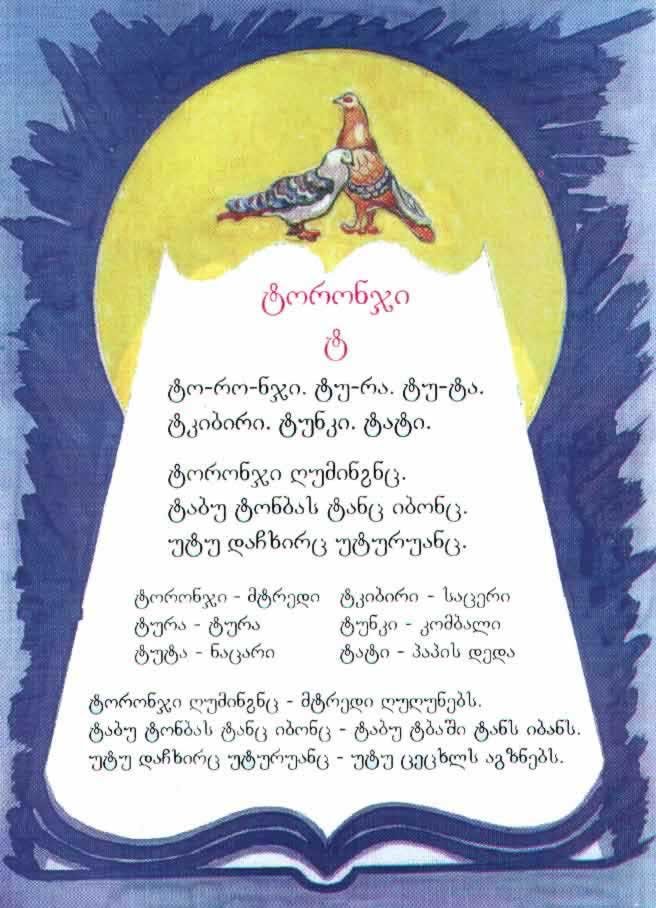 ტორონჯი
ტ
ტო-რო-ნჯი. ტუ-რა. ტუ-ტა.
ტკიბირი. ტუნკი. ტატი.
ტორონჯი ღუმინგნც.
ტაბუ ტონბას ტანც იბონც.
უტუ დაჩხირც უტურუანც.
ტორონჯი - მტრედი ტკიბირი - საცერი
ტურა - ტურა ტუნკი - კომბალი
ტუტა - ნაცარი ტატი - პაპის დედა
ტორონჯი ღუმინგნც - მტრედი ღუღუნებს.
ტაბუ ტონბას ტანც იბონც - ტაბუ ტბაში ტანს იბანს.
უტუ დაჩხირც უტურუანც - უტუ ცეცხლს აგზნებს.